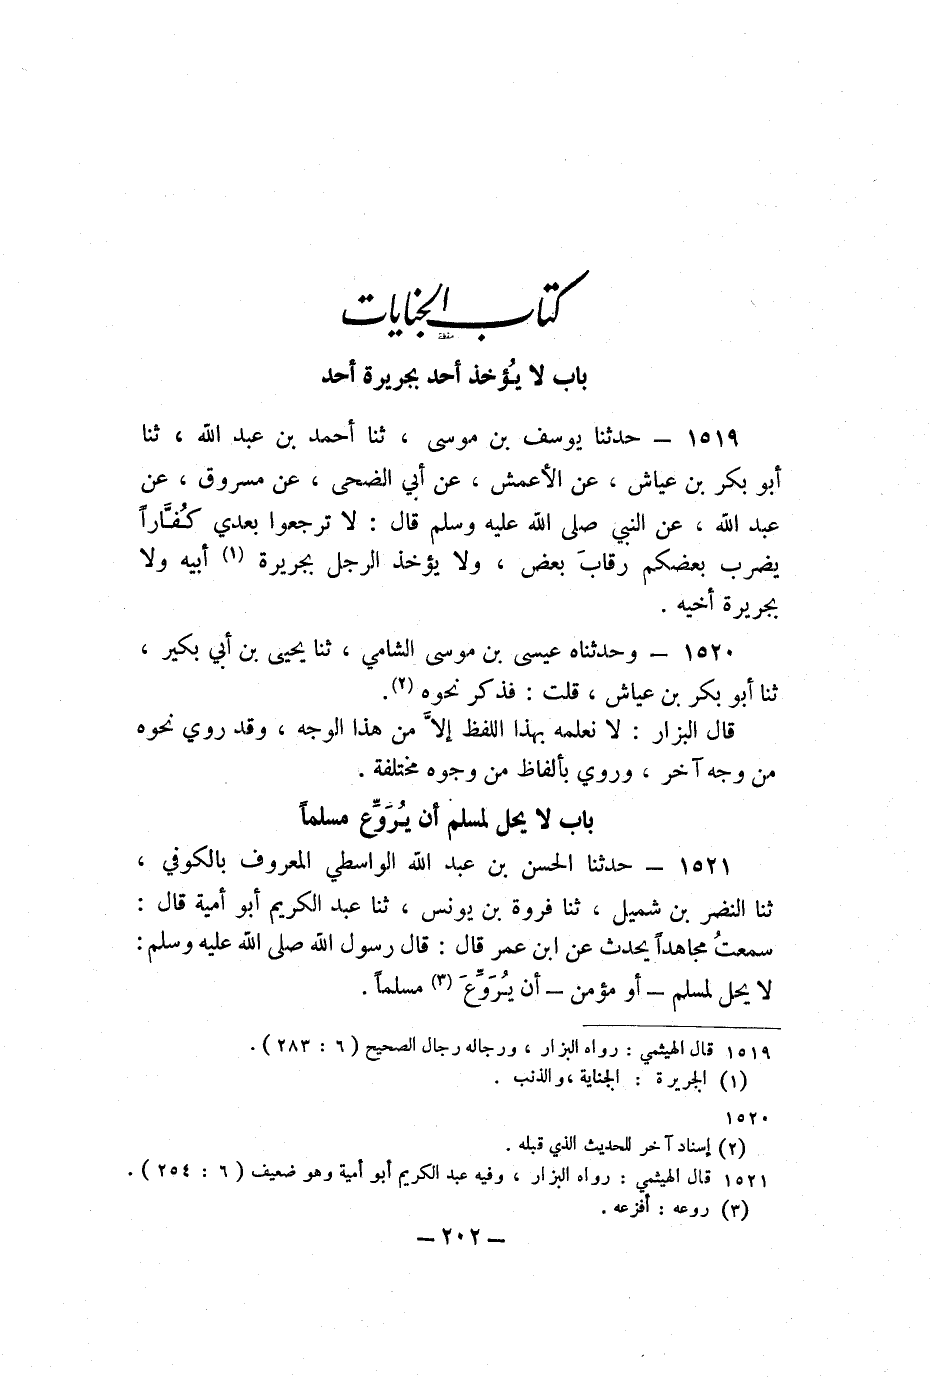 كتاب الجنايات
باب لا يُؤخذ أحد بجريرة أحد
١٥١٩ – حدثنا يوسف بن موسى ، ثنا أحمد بن عبد الله ، ثنا
أبو بكر بن عياش ، عن الأعمش ، عن أبي الضحى ، عن مسروق ، عن
عبد الله ، عن النبي صلى الله عليه وسلم قال : لا ترجعوا بعدي كُفَّاراً
يضرب بعضكم رقابَ بعض ، ولا يؤخذ الرجل بجريرة (١) أبيه ولا
بجريرة أخيه .
١٥٢٠ – وحدثناه عيسى بن موسى الشامي ، ثنا يحيى بن أبي بكير ،
ثنا أبو بكر بن عياش ، قلت : فذكر نحوه (٢).
قال البزار : لا نعلمه بهذا اللفظ إلاَّ من هذا الوجه ، وقد روي نحوه
من وجه آخر ، وروي بألفاظ من وجوه مختلفة .
باب لا يحل لمسلم أن يُرَوِّع مسلماً
١٥٢١ – حدثنا الحسن بن عبد الله الواسطي المعروف بالكوفي ،
ثنا النضر بن شميل ، ثنا فروة بن يونس ، ثنا عبد الكريم أبو أمية قال :
سمعتُ مجاهداً يحدث عن ابن عمر قال : قال رسول الله صلى الله عليه وسلم :
لا يحل لمسلم – أو مؤمن – أن يُرَوِّعَ (٣) مسلماً .
١٥١٩ قال الهيثمي : رواه البزار ، ورجاله رجال الصحيح ( ٦ : ٢٨٣ ) .
(١) الجريرة : الجناية ، والذنب .
١٥٢٠
(٢) إسناد آخر للحديث الذي قبله .
١٥٢١ قال الهيثمي : رواه البزار ، وفيه عبد الكريم أبو أمية وهو ضعيف ( ٦ : ٢٥٤ ) .
(٣) روعه : أفزعه .
– ٢٠٢ –